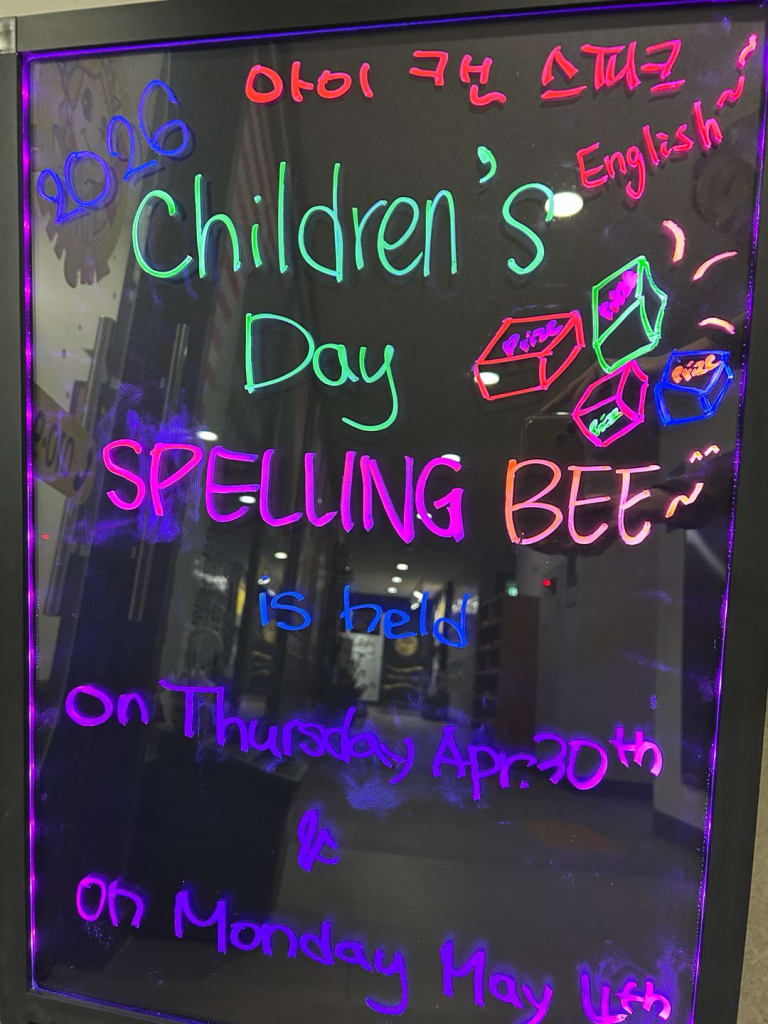 아이 캔 스피크
English~~
2026
Children's
Day
Prize
Prize
Prize
Prize
SPELLING BEE~
is held
on Thursday Apr.30th
&
on Monday May 4th